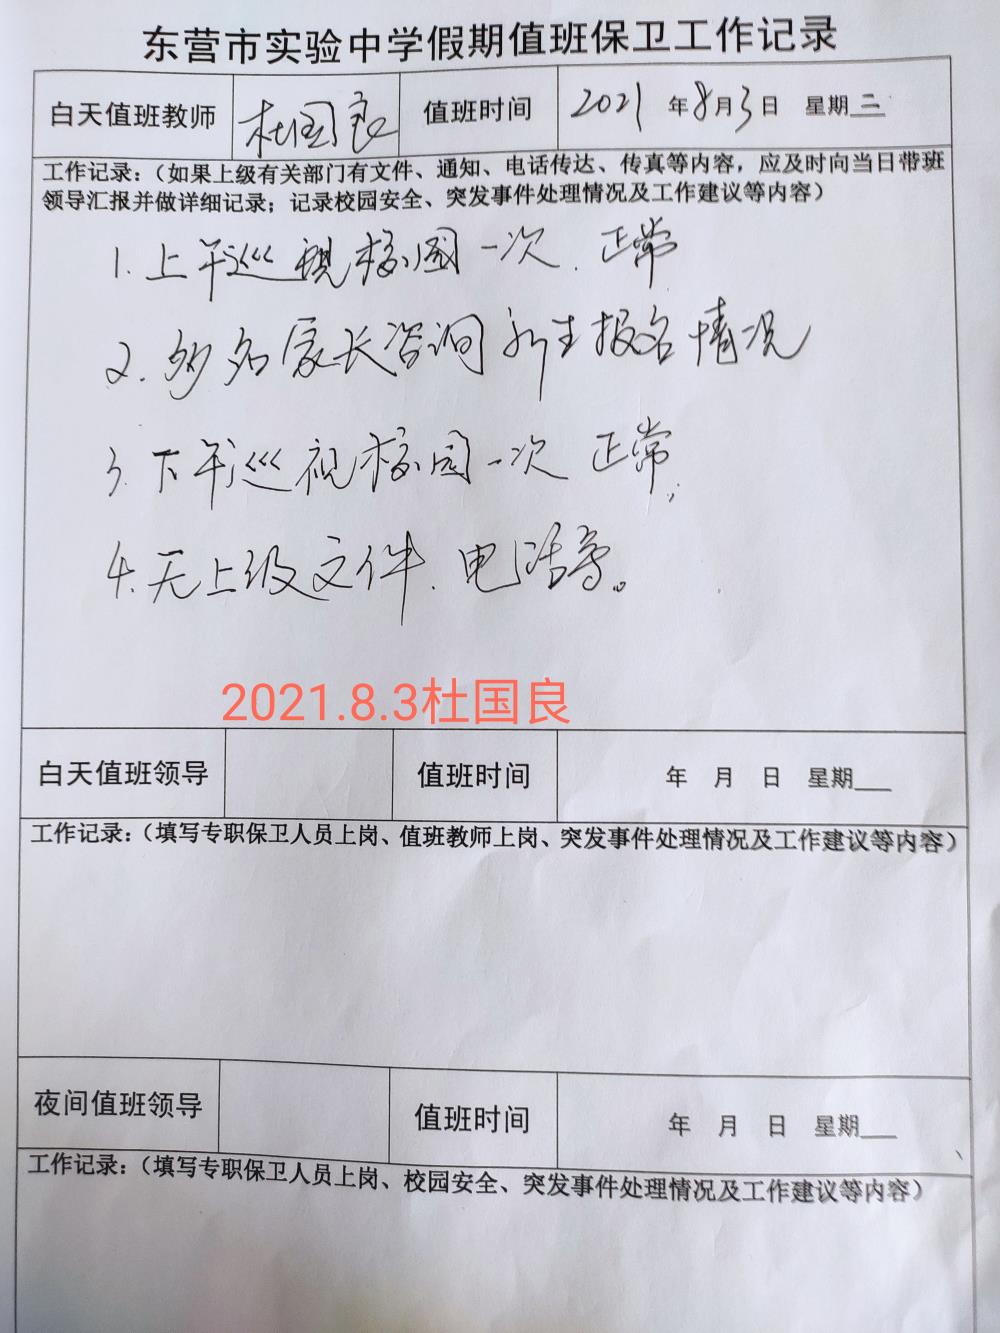 东营市实验中学假期值班保卫工作记录
白天值班教师 杜国良 值班时间 2021 年 8 月 3 日 星期二
工作记录：（如果上级有关部门有文件、通知、电话传达、传真等内容，应及时向当日带班
领导汇报并做详细记录；记录校园安全、突发事件处理情况及工作建议等内容）
1. 上午巡视校园一次. 正常
2. 多名家长咨询新生报名情况
3. 下午巡视校园一次 正常.
4. 无上级文件、电话等。
2021.8.3杜国良
白天值班领导 值班时间 年 月 日 星期__
工作记录：（填写专职保卫人员上岗、值班教师上岗、突发事件处理情况及工作建议等内容）
夜间值班领导 值班时间 年 月 日 星期__
工作记录：（填写专职保卫人员上岗、校园安全、突发事件处理情况及工作建议等内容）